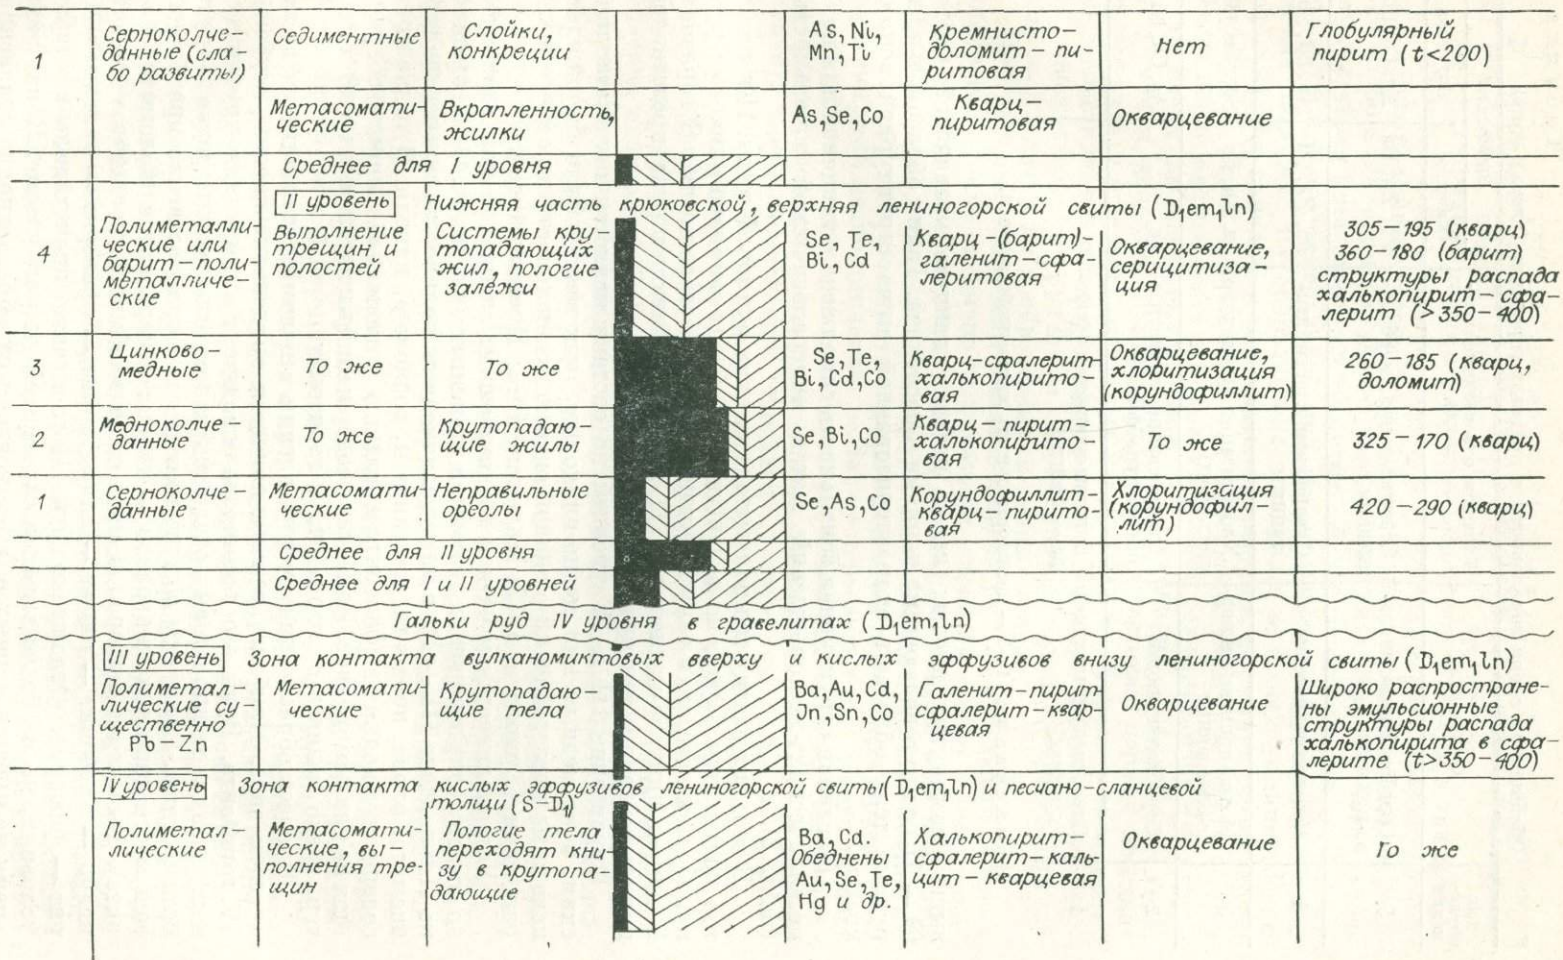 1
Серноколче-
данные (сла-
бо развиты)
Седиментные
Слойки,
конкреции
As, Ni,
Mn, Ti
Кремнисто-
доломит – пи-
ритовая
Нет
Глобулярный
пирит (t<200)
Метасомати-
ческие
Вкрапленность,
жилки
As, Se, Co
Кварц –
пиритовая
Окварцевание
Среднее для I уровня
II уровень Нижняя часть крюковской, верхняя лениногорской свиты (D₁em₁ln)
4
Полиметалли-
ческие или
барит – поли-
металличе-
ские
Выполнение
трещин и
полостей
Системы кру-
топадающих
жил, пологие
залежи
Se, Te,
Bi, Cd
Кварц –(барит)–
галенит – сфа-
леритовая
Окварцевание,
серицитиза-
ция
305–195 (кварц)
360–180 (барит)
структуры распада
халькопирит – сфа-
лерит (>350–400)
3
Цинково-
медные
То же
То же
Se, Te,
Bi, Cd, Co
Кварц-сфалерит-
халькопирито-
вая
Окварцевание,
хлоритизация
(корундофиллит)
260–185 (кварц,
доломит)
2
Медноколче-
данные
То же
Крутопадаю-
щие жилы
Se, Bi, Co
Кварц – пирит –
халькопирито-
вая
То же
325 – 170 (кварц)
1
Серноколче-
данные
Метасомати-
ческие
Неправильные
ореолы
Se, As, Co
Корундофиллит-
кварц – пирито-
вая
Хлоритизация
(корундофил-
лит)
420 – 290 (кварц)
Среднее для II уровня
Среднее для I и II уровней
Гальки руд IV уровня в гравелитах (D₁em₁ln)
III уровень Зона контакта вулканомиктовых вверху и кислых эффузивов внизу лениногорской свиты (D₁em₁ln)
Полиметал-
лические су-
щественно
Pb – Zn
Метасомати-
ческие
Крутопадаю-
щие тела
Ba, Au, Cd,
Jn, Sn, Co
Галенит – пирит-
сфалерит – квар-
цевая
Окварцевание
Широко распростране-
ны эмульсионные
структуры распада
халькопирита в сфа-
лерите (t>350–400)
IV уровень Зона контакта кислых эффузивов лениногорской свиты (D₁em₁ln) и песчано-сланцевой
толщи (S–D₁)
Полиметал-
лические
Метасомати-
ческие, вы-
полнения тре-
щин
Пологие тела
переходят кни-
зу в крутопа-
дающие
Ba, Cd.
Обеднены
Au, Se, Te,
Hg и др.
Халькопирит –
сфалерит – каль-
цит – кварцевая
Окварцевание
То же